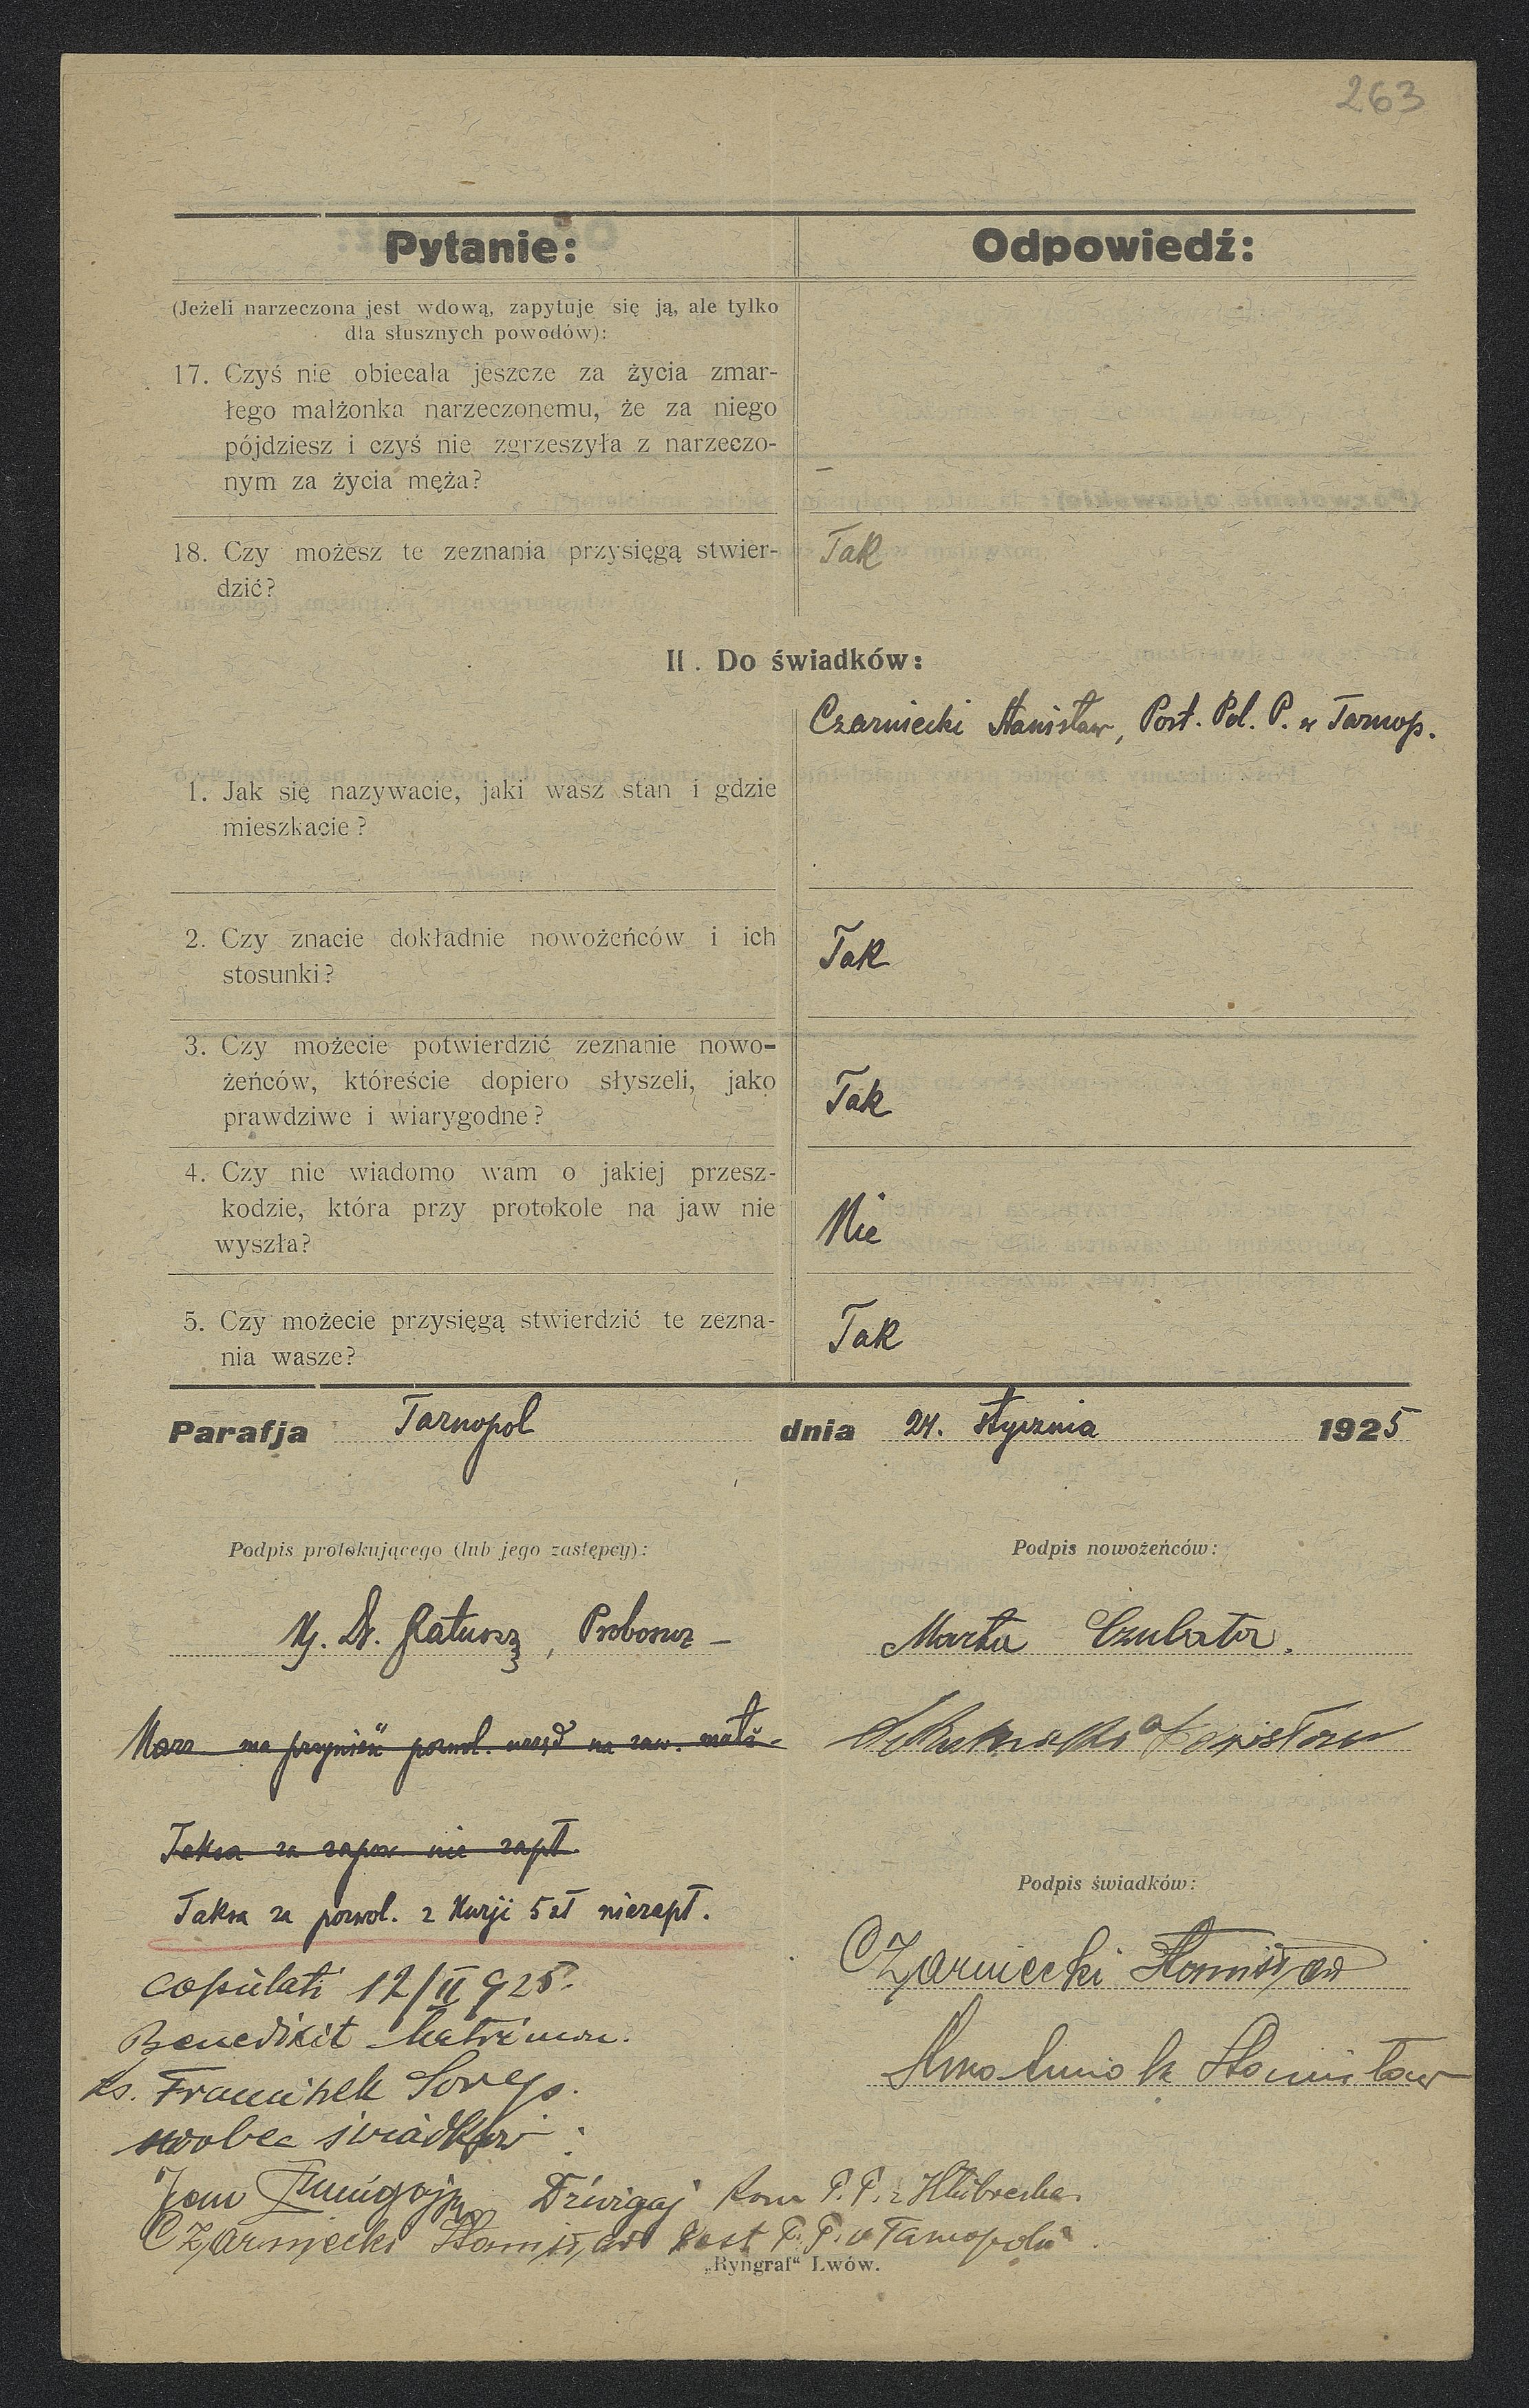 263
Pytanie:
Odpowiedź:
(Jeżeli narzeczona jest wdową, zapytuje się ją, ale tylko
dla słusznych powodów):
17. Czyś nie obiecała jeszcze za życia zmar-
łego małżonka narzeczonemu, że za niego
pójdziesz i czyś nie zgrzeszyła z narzeczo-
nym za życia męża?
–
18. Czy możesz te zeznania przysięgą stwier-
dzić?
Tak
II. Do świadków:
Czarniecki Stanisław, Post. Pol. P. w Tarnop.
1. Jak się nazywacie, jaki wasz stan i gdzie
mieszkacie?
2. Czy znacie dokładnie nowożeńców i ich
stosunki?
Tak
3. Czy możecie potwierdzić zeznanie nowo-
żeńców, któreście dopiero słyszeli, jako
prawdziwe i wiarygodne?
Tak
4. Czy nie wiadomo wam o jakiej przesz-
kodzie, która przy protokole na jaw nie
wyszła?
Nie
5. Czy możecie przysięgą stwierdzić te zezna-
nia wasze?
Tak
Parafja Tarnopol dnia 24. stycznia 1925
Podpis protokującego (lub jego zastępcy):
Podpis nowożeńców:
Dr. Ratuszą, Proboszcz –
Marta Czubata.
Narz. ma przynieść pozwol. urzęd na zaw. małż.
Taksa za zapow. nie zapł.
Taksa za pozwol. z Kurji 5 zł niezapł.
Podpis świadków:
Czarniecki Stanisław
copulati 12/II 925.
Benedixit Matrimon.
Stanisław
Ks. Franciszek
wobec świadków:
Jan Dźwigaj Kom P. P. z
Czarniecki Stanisław Post P. P. w Tarnopolu
„Ryngraf“ Lwów.